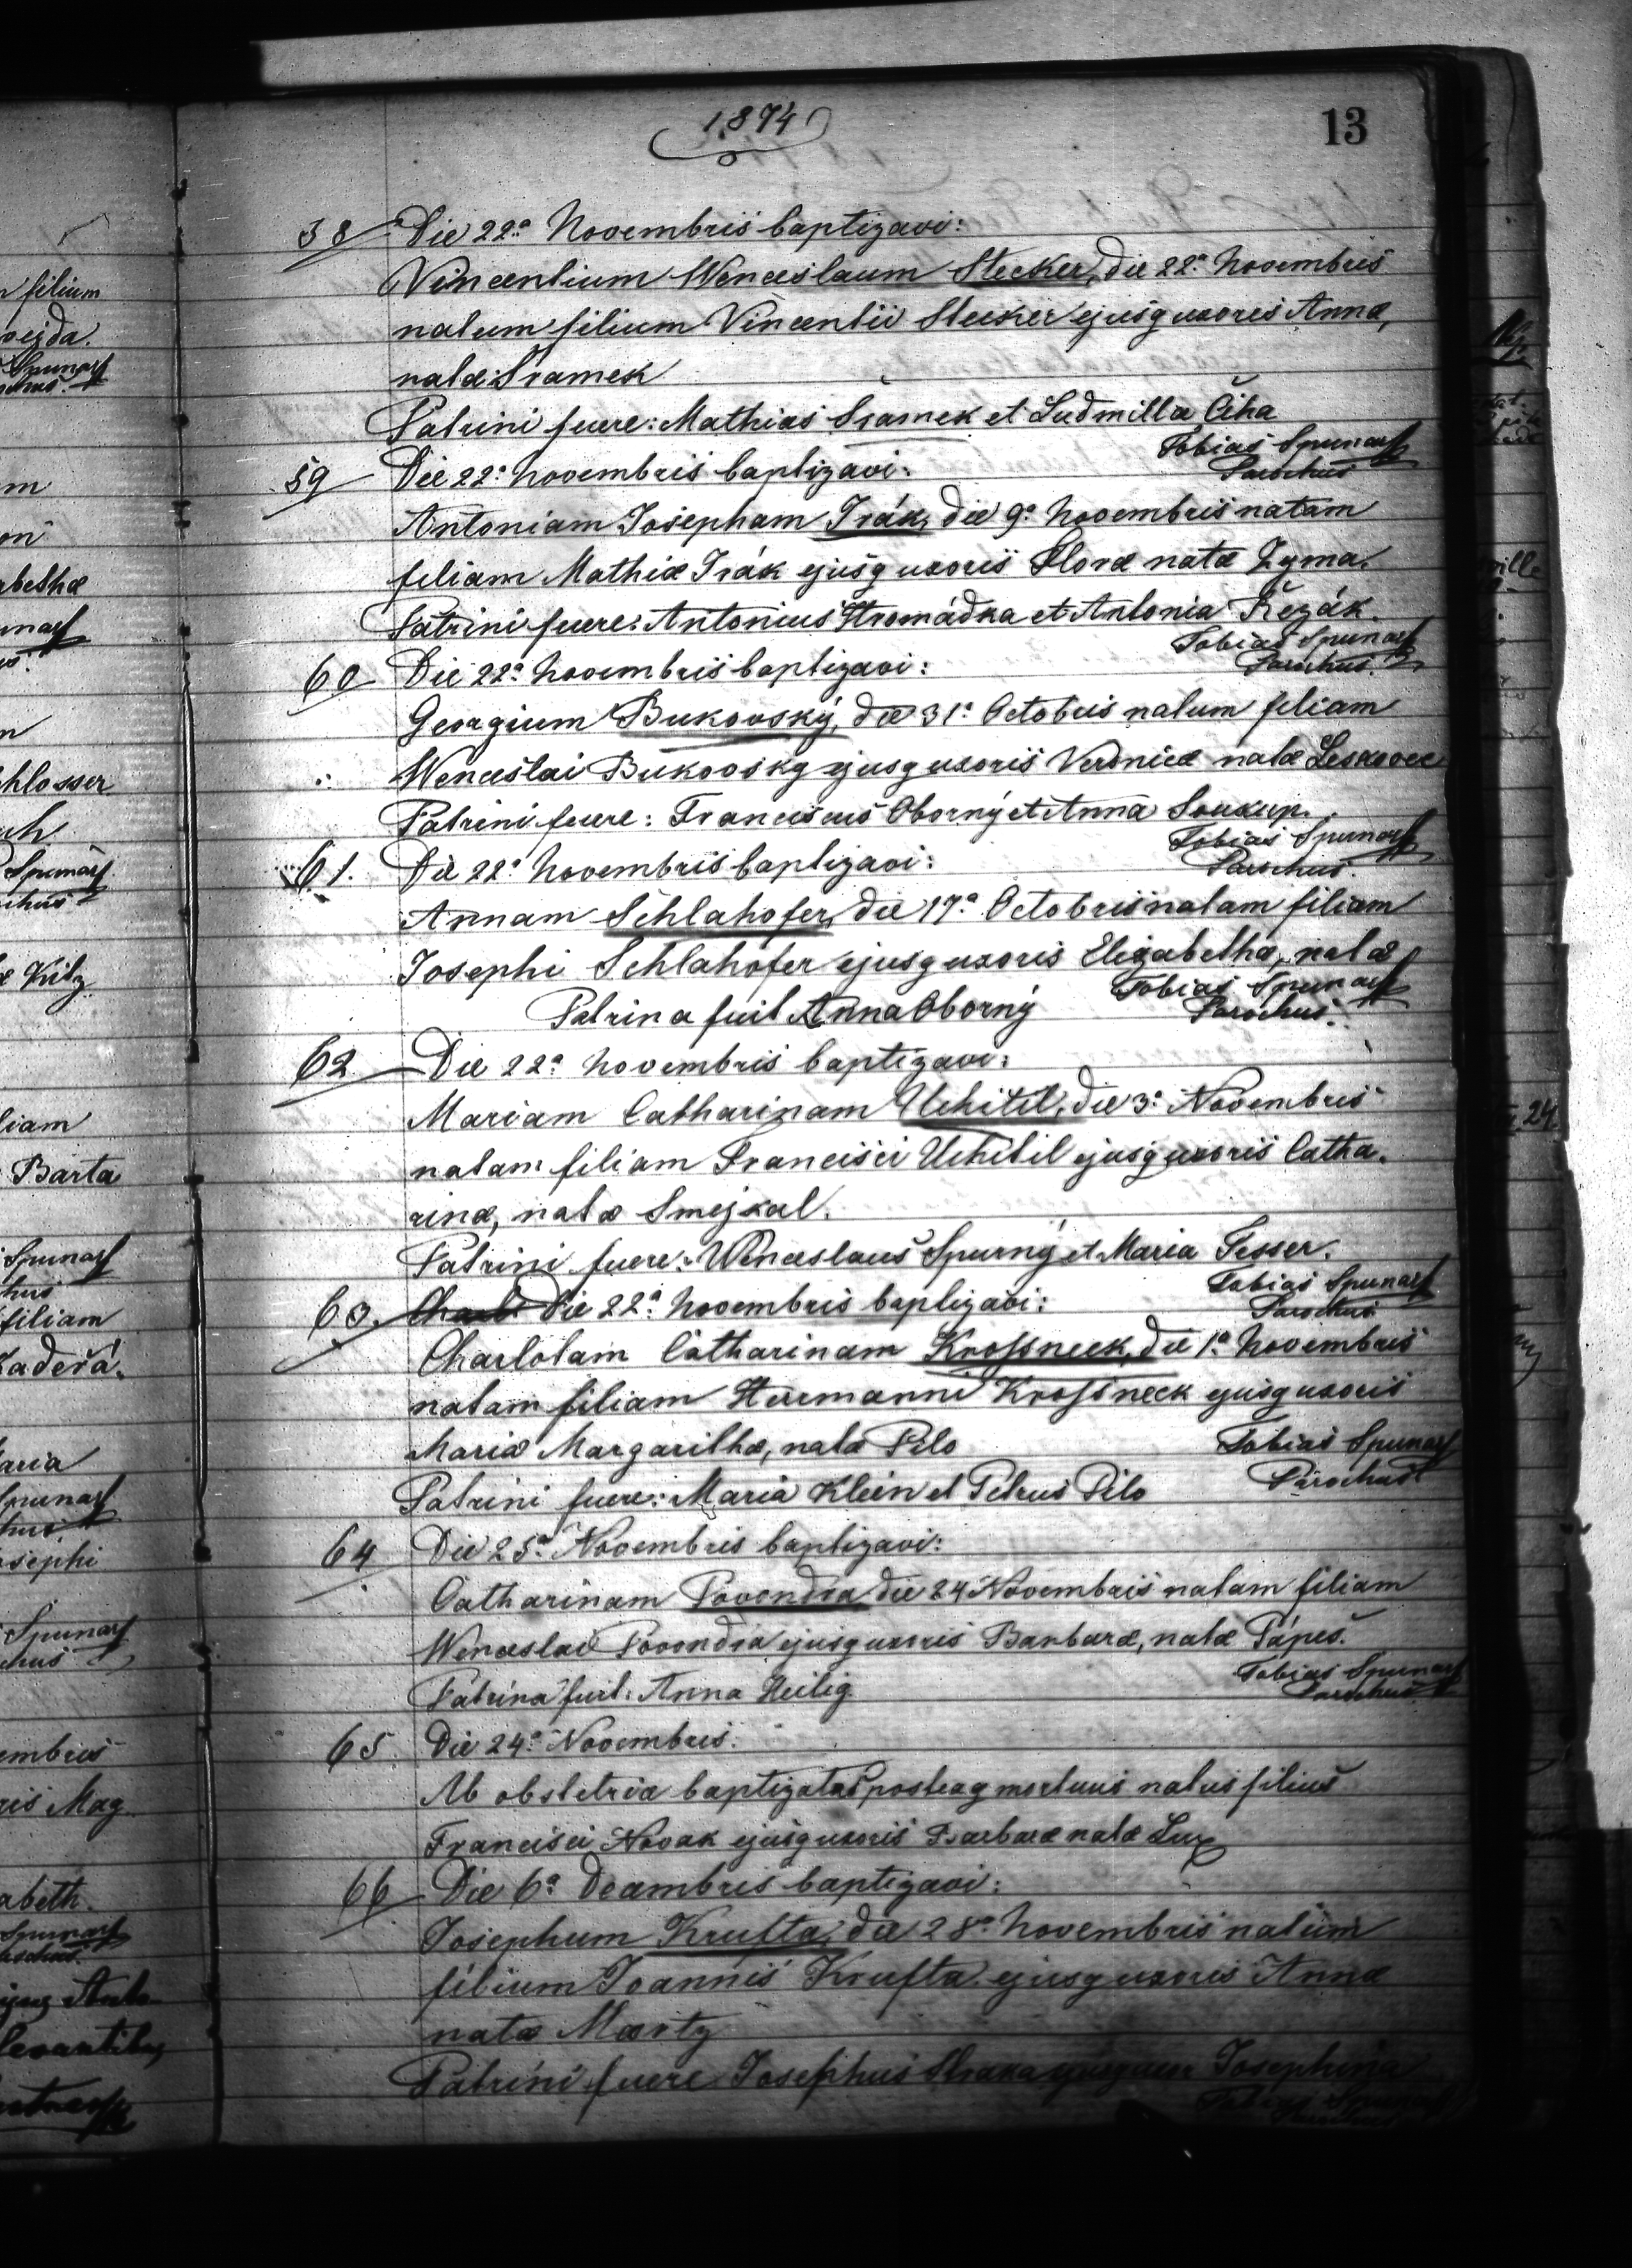 1874
13
58 Die 22ª Novembris baptizavi:
Vincentium Wenceslaum Stecker, die 22ª Novembris
natum filium Vincentii Stecker ejusq uxoris Annæ,
natæ Sramek
Patrini fuere: Mathias Sramek et Ludmilla Čiha
Tobias Spunar
Parochus
59 Die 22ª Novembris baptizavi:
Antoniam Josepham Irák, die 9ª Novembris natam
filiam Mathiæ Irák ejusq uxoris Floræ natæ Zyma.
Patrini fuere: Antonius Hromádka et Antonia Řezák.
Tobias Spunar
Parochus.
60 Die 22ª Novembris baptizavi:
Georgium Bukovský, die 31ª Octobris natum filiam
Wenceslai Bukovsky ejusq uxoris Veronicæ natæ Leskovec
Patrini fuere: Franciscus Oborný et Anna Soukup.
Tobias Spunar
Parochus.
61. Die 22ª Novembris baptizavi:
Annam Schlahofer, die 17ª Octobris natam filiam
Josephi Schlahofer ejusq uxoris Elizabethæ, natæ
Tobias Spunar
Patrina fuit Anna Oborný
Parochus.
62 Die 22ª Novembris baptizavi:
Mariam Catharinam Uchitil, die 3ª Novembris
natam filiam Francisci Uchitil ejusq uxoris Catha.
rinæ, natæ Smejkal.
Patrini fuere: Wenceslaus Spurný et Maria Tesser.
Tobias Spunar
63. Die 22ª Novembris baptizavi:
Parochus
Charlotam Catharinam Krossneck, die 1ª Novembris
natam filiam Hermanni Krossneck ejusq uxoris
Mariæ Margarithæ, natæ Pilo
Tobias Spunar
Patrini fuere: Maria Klein et Petrus Pilo
Parochus
64 Die 25ª Novembris baptizavi:
Catharinam Povondra die 24 Novembris natam filiam
Wenceslai Povondra ejusq uxoris Barbaræ, natæ Pápeš.
Tobias Spunar
Patrina fuit: Anna Heilig
Parochus
65. Die 24ª Novembris.
Ab obstetrice baptizatus posteaq mortuus natus filius
Francisci Novak ejusq uxoris Barbaræ natæ Lux
66 Die 6ª Decembris baptizavi:
Josephum Krufta, die 28ª Novembris natum
filium Joannis Krufta ejusq uxoris Annæ
natæ Moritz
Patrini fuere Josephus Straka ejusq uxor Josephina